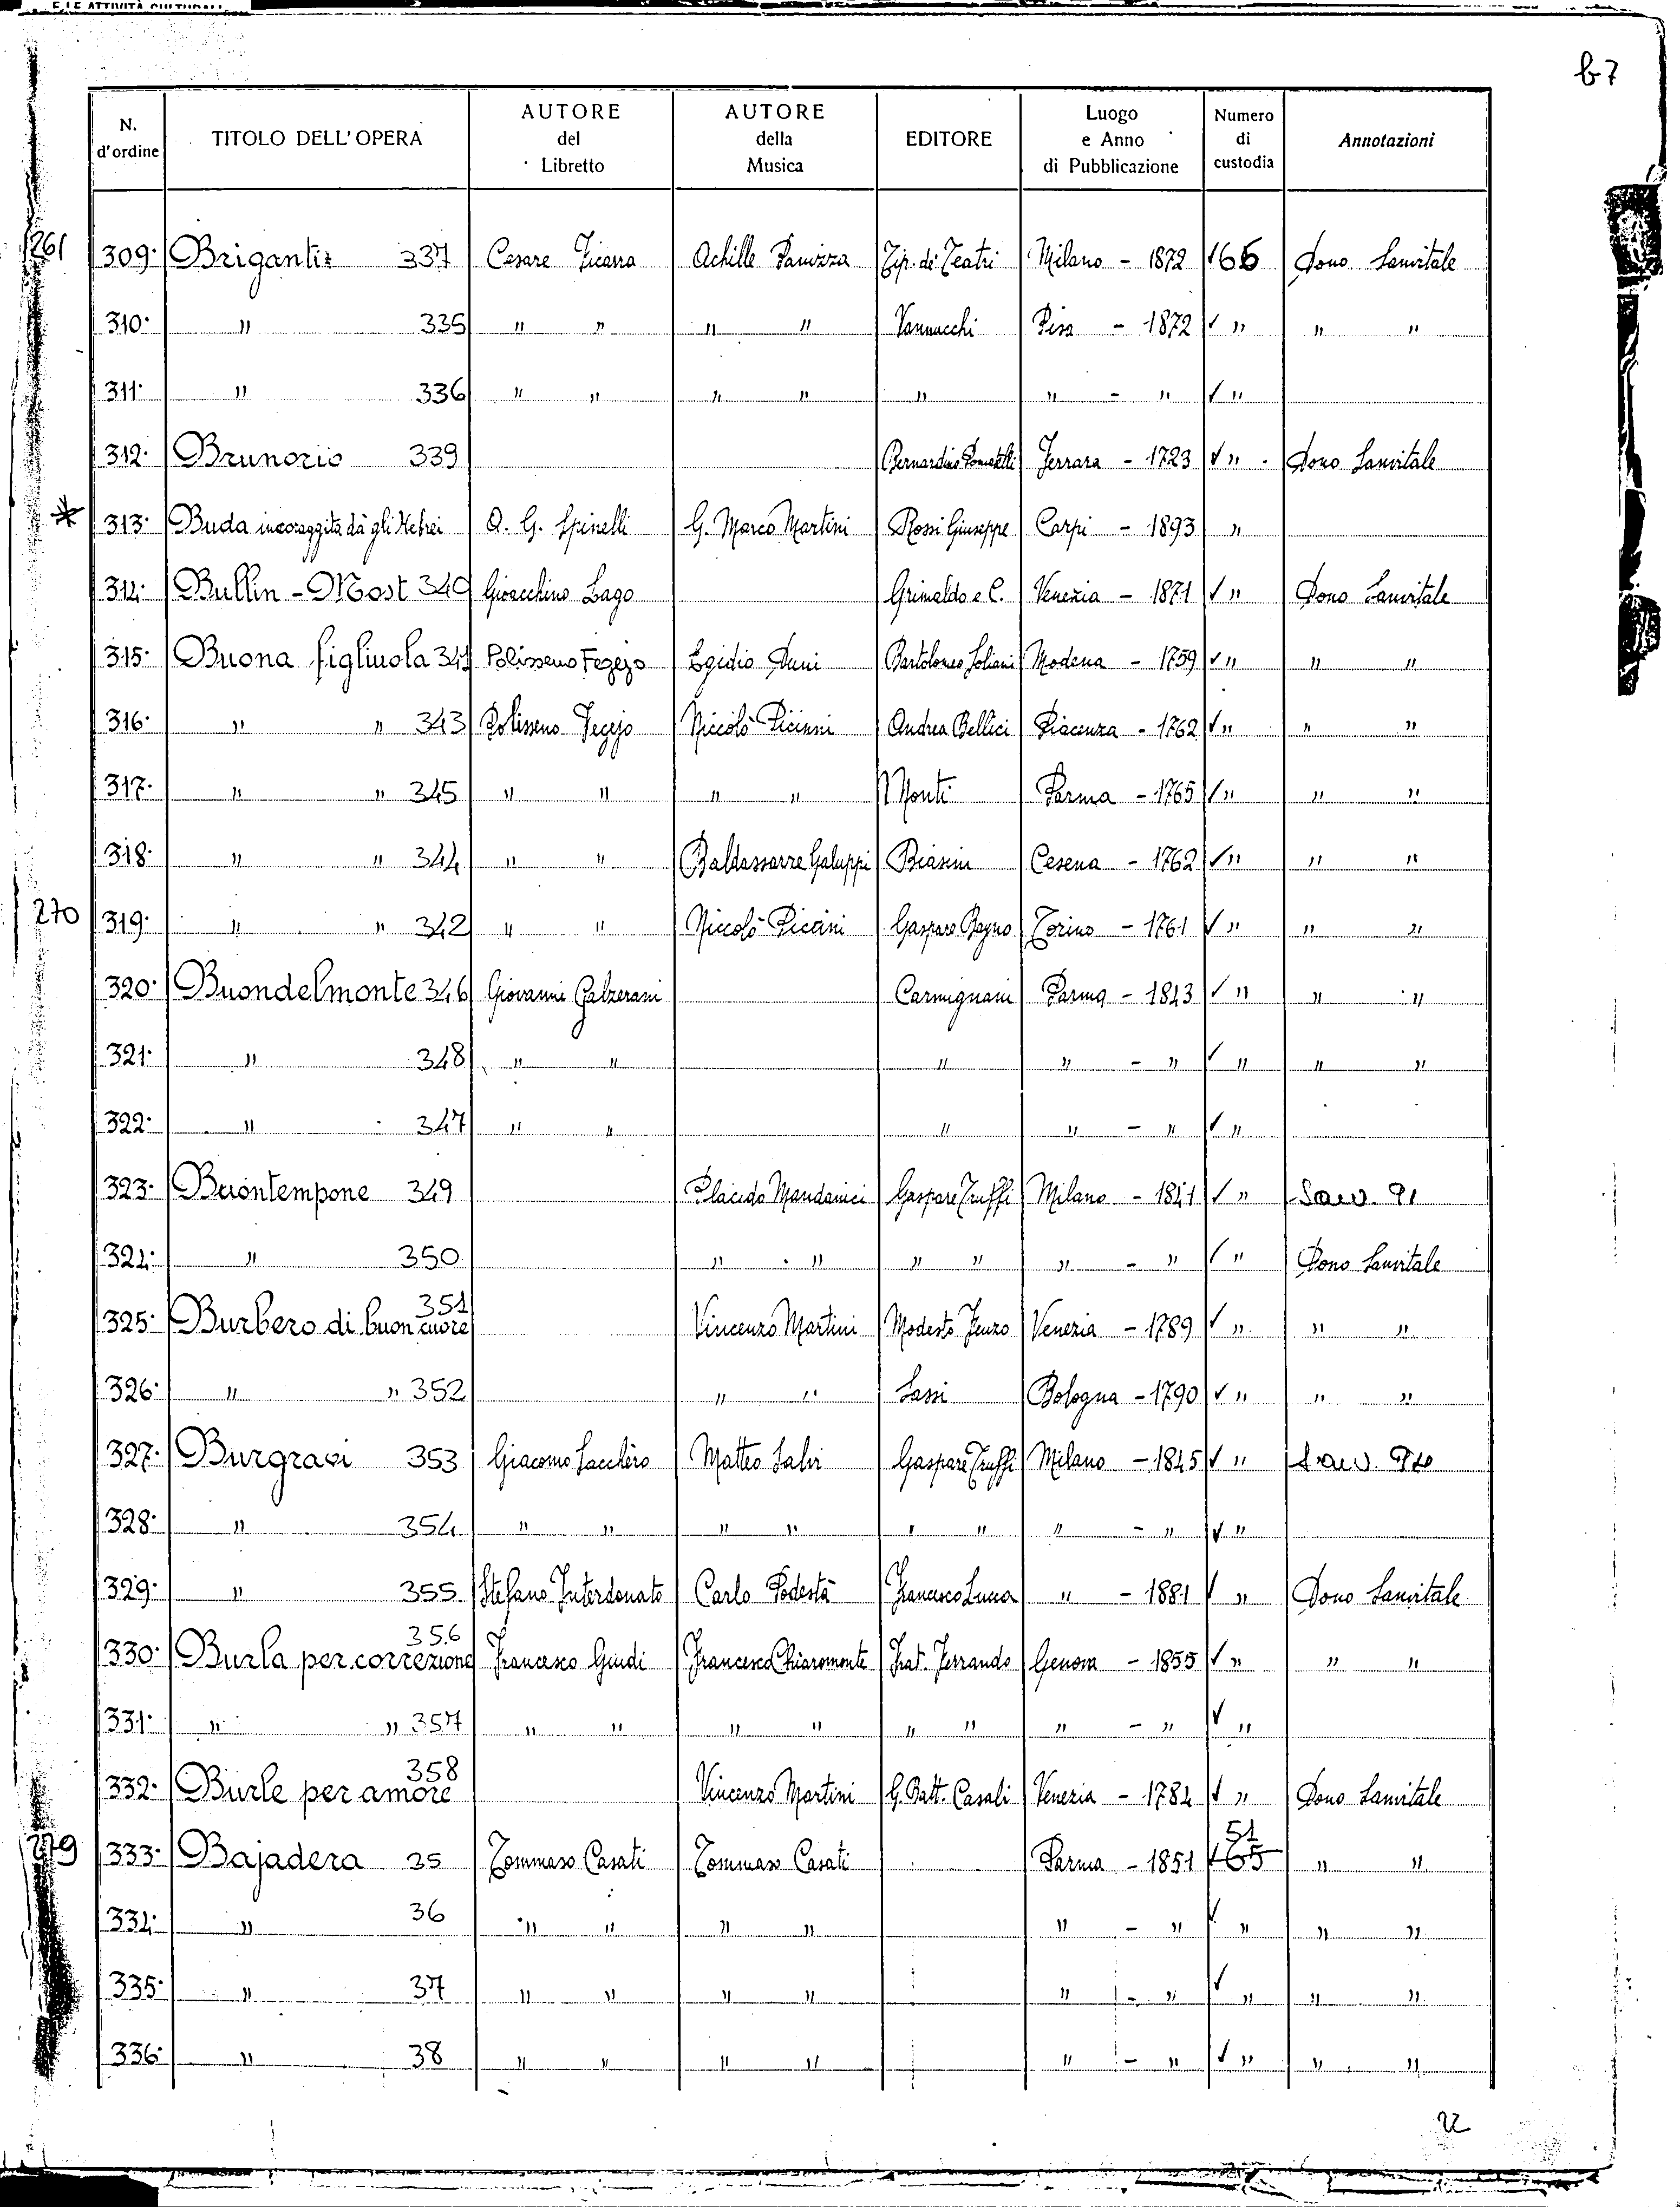 E LE ATTIVITÀ CULTURALI
b7
N. d'ordine TITOLO DELL'OPERA AUTORE del Libretto AUTORE della Musica EDITORE Luogo e Anno di Pubblicazione Numero di custodia Annotazioni
261 309. Briganti 337 Cesare Achille Panizza Tip. dei Teatri Milano - 1872 Dono Sanvitale
310. " 335 " " " " Vannucchi Pisa - 1872 √ " " "
311. " 336 " " " " " " - " √ "
312. Brunorio 339 Bernardino Pomatelli Ferrara - 1723 √ " Dono Sanvitale
* 313. Buda incoraggita dà gli Hebrei A. G. Spinelli G. Marco Martini Rossi Giuseppe Carpi - 1893 "
314. Bullin - Most 340 Gioacchino Lago Grimaldo e C. Venezia - 1871 √ " Dono Sanvitale
315. Buona figliuola 341 Polisseno Fegejo Egidio Duni Bartolomeo Soliani Modena - 1759 √ " " "
316. " " 343 Polisseno Fegejo Niccolò Piccinni Andrea Bellici Piacenza - 1762 √ " " "
317. " " 345 " " " " Monti Parma - 1765 √ " " "
318. " " 344 " " Baldassarre Galuppi Biasini Cesena - 1762 √ " " "
270 319. " " 342 " " Niccolò Piccini Gaspare Bayno Torino - 1761 √ " " "
320. Buondelmonte 346 Giovanni Galzerani Carmignani Parma - 1843 √ " " "
321. " 348 " " " " - " √ " " "
322. " 347 " " " " - " √ "
323. Buontempone 349 Placido Mandanici Gaspare Truffi Milano - 1841 √ " Sanv. 91
324. " 350 " " " " " - " √ " Dono Sanvitale
325. Burbero di buon cuore 351 Vincenzo Martini Modesto Fenzo Venezia - 1789 √ " " "
326. " " 352 " " Sassi Bologna - 1790 √ " " "
327. Burgravi 353 Giacomo Sacchèro Matteo Salvi Gaspare Truffi Milano - 1845 √ " Sanv.
328. " 354 " " " " " " " - " √ "
329. " 355 Stefano Interdonato Carlo Podestà Francesco Lucca " - 1881 √ " Dono Sanvitale
330. Burla per correzione 356 Francesco Guidi Francesco Chiaromonte Frat. Ferrando Genova - 1855 √ " " "
331. " " 357 " " " " " " " - " √ "
332. Burle per amore 358 Vincenzo Martini G. Batt. Casali Venezia - 1784 √ " Dono Sanvitale
279 333. Bajadera 35 Tommaso Casati Tommaso Casati Parma - 1851 √ 65 51 " "
334. " 36 " " " " " - " √ " " "
335. " 37 " " " " " - " √ " " "
336. " 38 " " " " " - " √ " " "
22